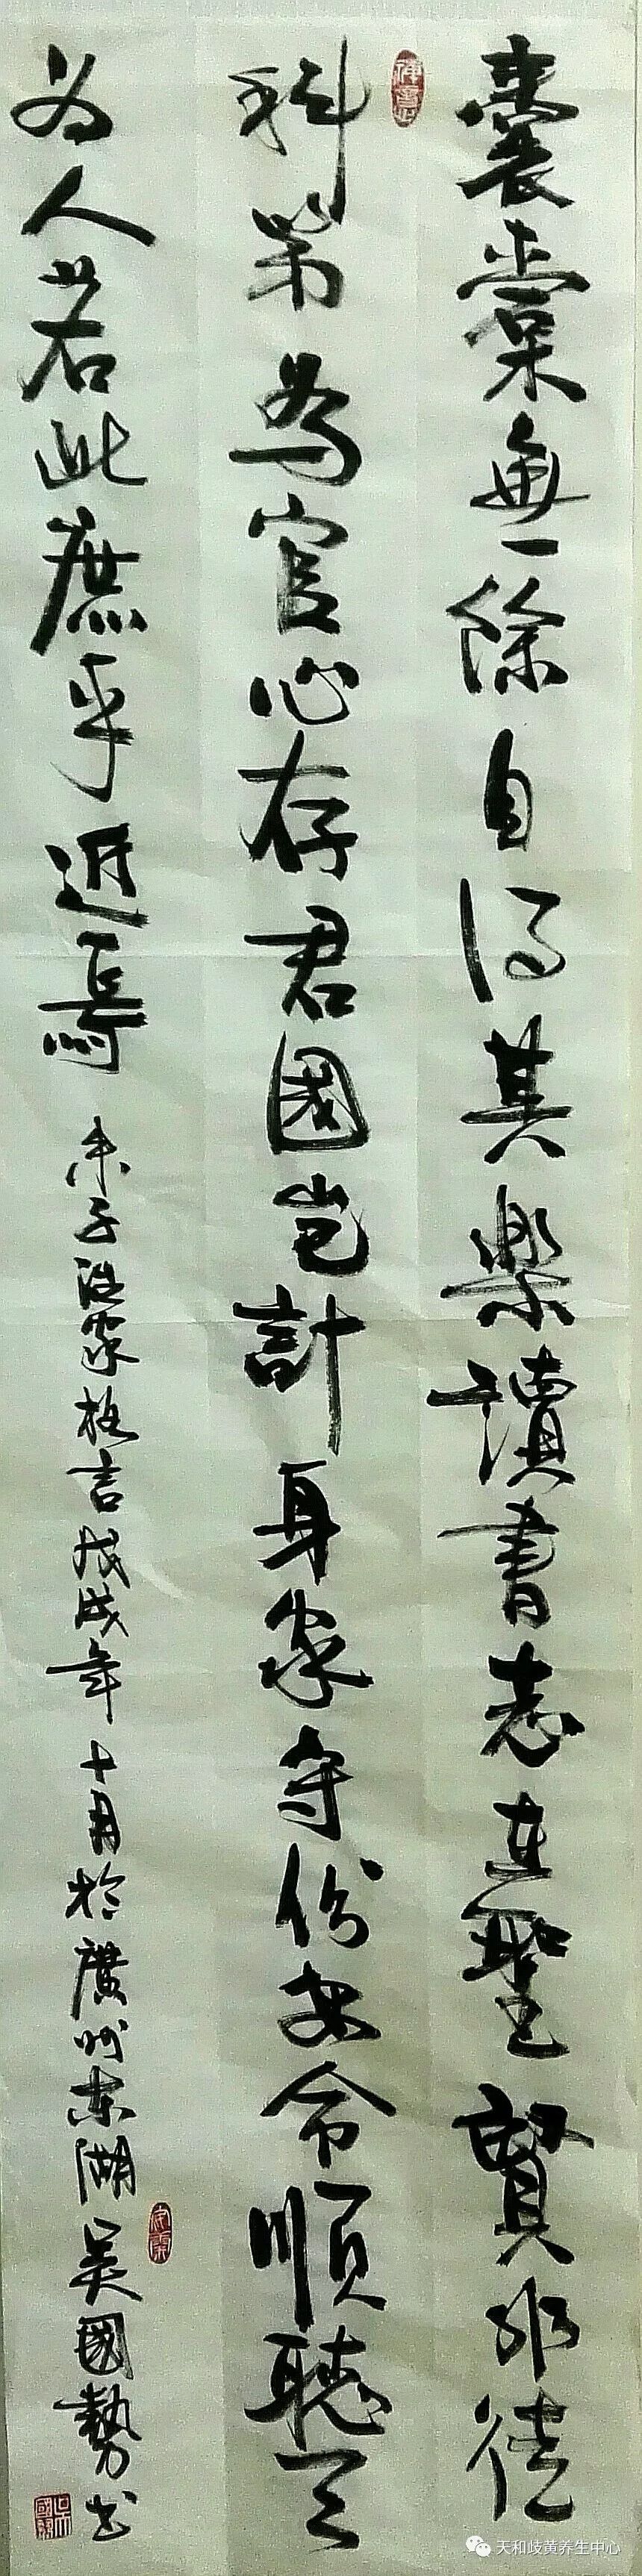 囊橐無餘自得其樂讀書志在聖賢非徒
科第為官心存君國豈計身家守份安命順聽天
为人若此庶乎近焉 朱子治家格言戊戌年十月於廣州東湖吳國勢书
天和歧黄养生中心